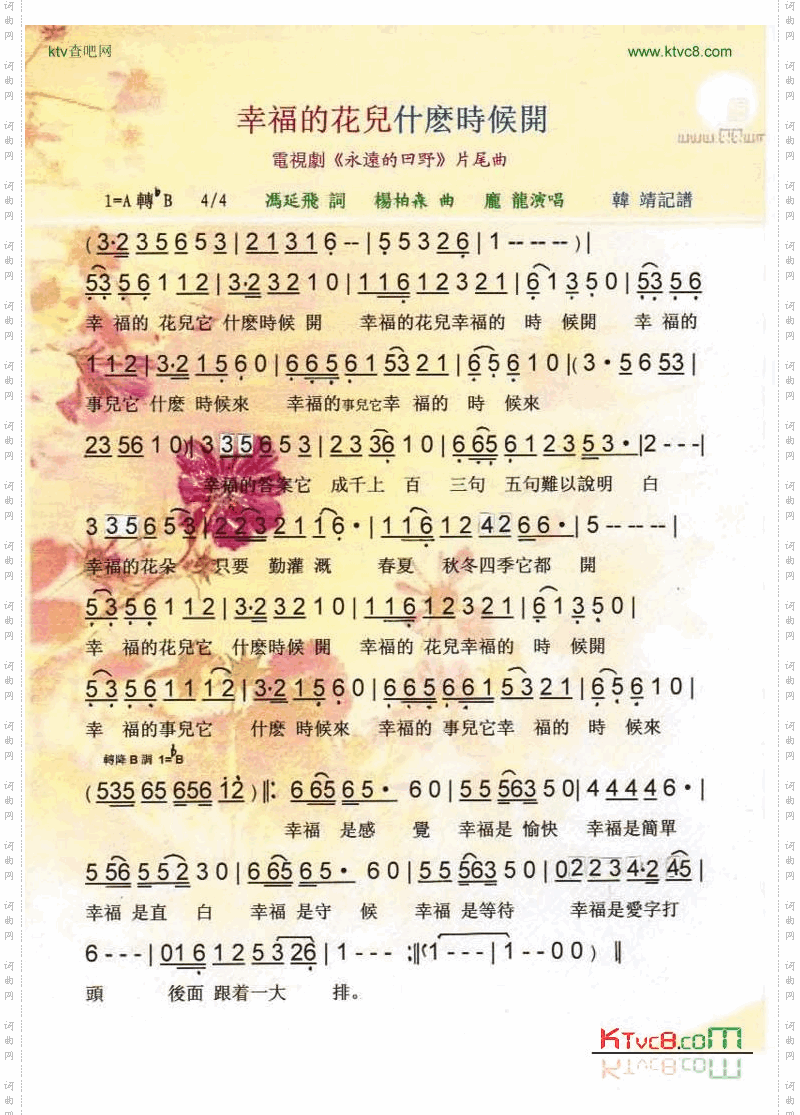 ktv查吧网 www.ktvc8.com
幸福的花兒什麽時候開
電視劇《永遠的田野》片尾曲
1=A 轉♭B 4/4 馮延飛 詞 楊柏森 曲 龐 龍演唱 韓 靖記譜
( 3·2 3 5 6 5 3 | 2 1 3 1 6 -- | 5 5 3 2 2 6 | 1 -- -- -- ) |
53 5 6 1 1 2 | 3·2 3 2 1 0 | 1 1 6 1 2 3 2 1 | 6 1 3 5 0 | 53 5 6
幸 福的 花兒它 什麽時候 開 幸福的花兒幸福的 時 候開 幸 福的
1 1 2 | 3·2 1 5 6 0 | 6 6 5 6 1 53 2 1 | 6 5 6 1 0 | ( 3 · 5 6 53 |
事兒它 什麽 時候來 幸福的事兒它幸 福的 時 候來
23 56 1 0 ) | 3 3 5 6 5 3 | 2 3 36 1 0 | 6 65 6 1 2 3 5 3 · | 2 - - - |
幸福的答案它 成千上 百 三句 五句難以說明 白
3 3 5 6 5 3 | 2 2 3 2 1 1 6 · | 1 1 6 1 2 4 2 6 6 · | 5 -- -- -- |
幸福的花朵 只要 勤灌 溉 春夏 秋冬四季它都 開
5 3 5 6 1 1 2 | 3·2 3 2 1 0 | 1 1 6 1 2 3 2 1 | 6 1 3 5 0 |
幸 福的花兒它 什麽時候 開 幸福的 花兒幸福的 時 候開
5 3 5 6 1 1 1 2 | 3·2 1 5 6 0 | 6 6 5 6 6 1 5 3 2 1 | 6 5 6 1 0 |
幸 福的事兒它 什麽 時候來 幸福的 事兒它幸 福的 時 候來
轉降 B 調 1=♭B
( 535 65 656 12 ) ‖: 6 65 6 5 · 6 0 | 5 5 563 5 0 | 4 4 4 4 6 · |
幸福 是感 覺 幸福是 愉快 幸福是簡單
5 56 5 5 2 3 0 | 6 65 6 5 · 6 0 | 5 5 563 5 0 | 02 2 3 4·2 45 |
幸福 是直 白 幸福 是守 候 幸福 是等待 幸福是愛字打
6 - - - | 01 6 1 2 5 3 26 | 1 - - - :‖ ( 1 - - - | 1 - - 0 0 ) ‖
頭 後面 跟着一大 排。
KTVC8.COM